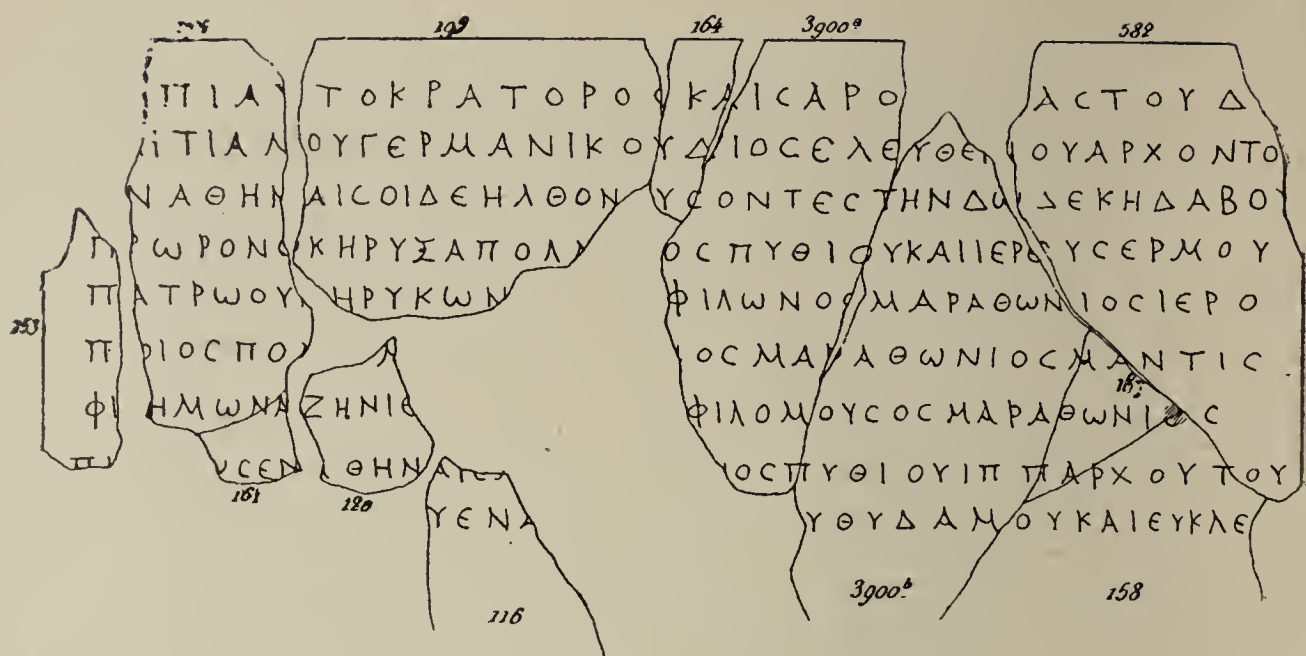 199 164 3900ª 582
ΠΙΑΥ ΤΟΚΡΑΤΟΡΟС ΚΑΙСΑΡΟ ΑСΤΟΥΔ
ΙΤΙΑΝΟΥΓΕΡΜΑΝΙΚΟΥΔΙΟСΕΛΕΥΘΕΙ ΙΟΥΑΡΧΟΝΤΟ
ΝΑΘΗΝΑΙСΟΙΔΕΗΛΘΟΝ ΥСΟΝΤΕСΤΗΝΔω ΔΕΚΗΔΑΒΟΥ
Π ΡωΡΟΝΟ ΚΗΡΥΞΑΠΟΛΛ ΟСΠΥΘΙΟΥΚΑΙΙΕΡΕΥСΕΡΜΟΥ
Π ΑΤΡωΟΥ ΗΡΥΚωΝ ΦΙΛωΝΟСΜΑΡΑΘωΝΙΟСΙΕΡΟ
253
Π ΙΟСΠΟΛ Λ ΙΟСΜΑΡΑΘωΝΙΟСΜΑΝΤΙС
ΦΙ ΗΜωΝΑ ΖΗΝΙС ΦΙΛΟΜΟΥСΟСΜΑΡΑΘωΝΙΟС
Π ΥСΕΝ ΑΘΗΝΑ ΙΟСΠΥΘΙΟΥΙΠΠΑΡΧΟΥΤΟΥ
161 120
ΥΕΝΑ ΥΘΥΔΑΜΟΥΚΑΙΕΥΚΛΕ
116 3900ᵇ 158